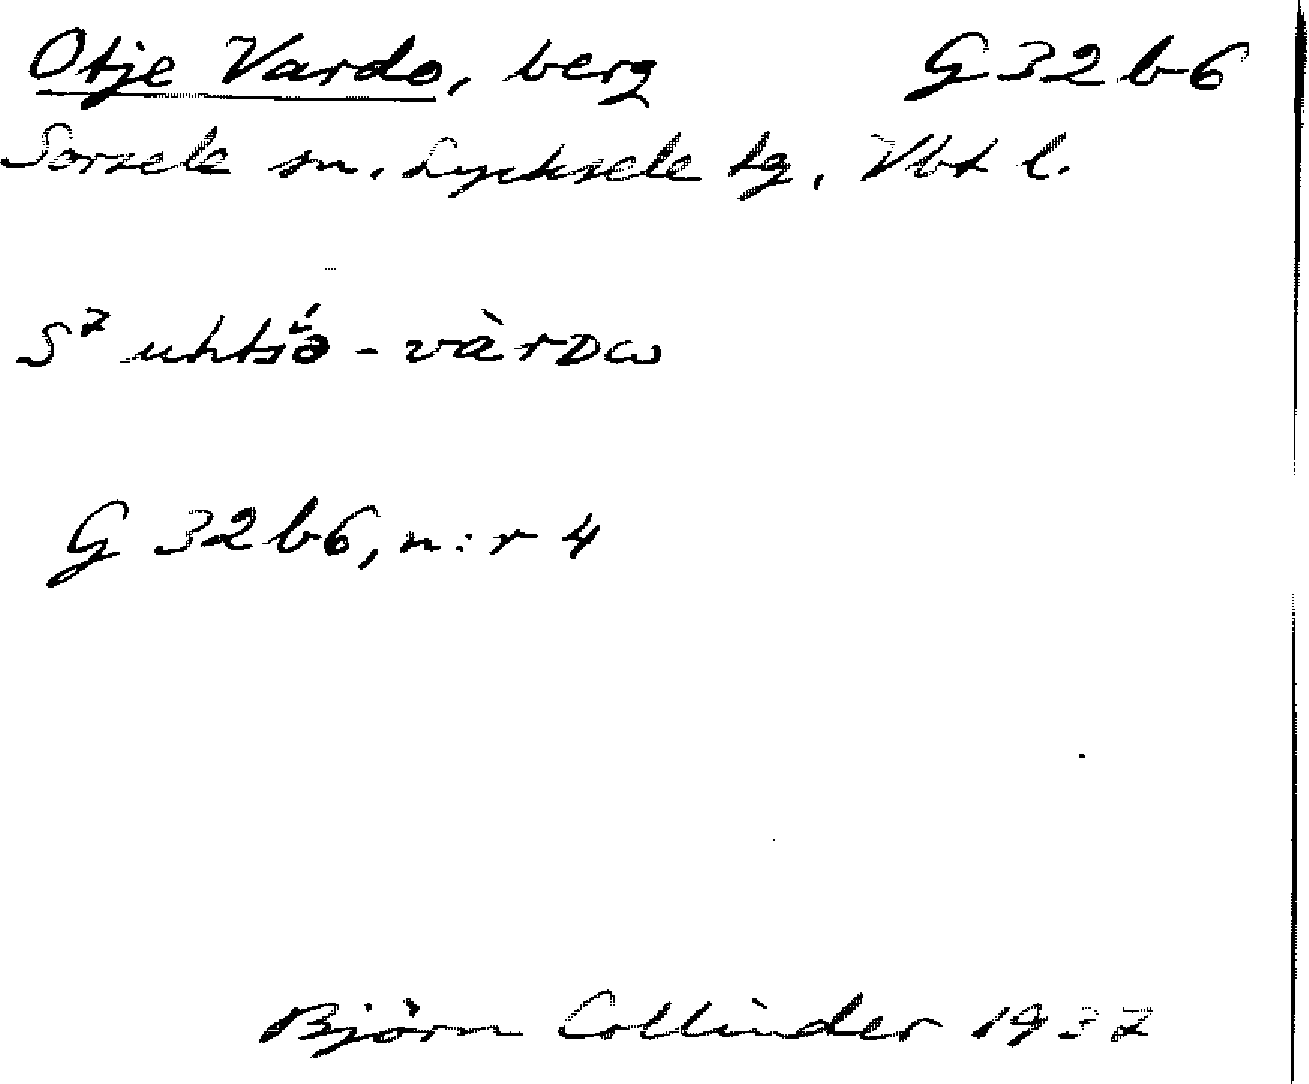 Otje Vardo, berg G 32 b 6
Sorsele sn. Lycksele tg, Vbt l.
S⁷ uht́sə - vàrDω
G 32 b 6, n:r 4
Björn Collinder 1937